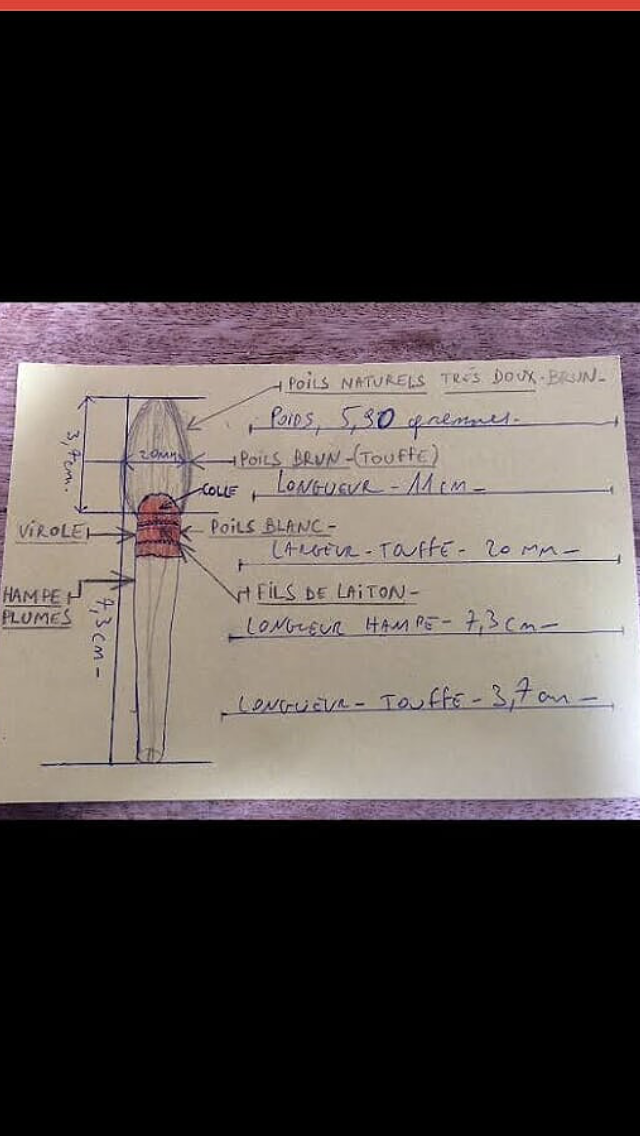 POILS NATURELS TRÈS DOUX-BRUN-
POIDS, 5,90 grammes-
3,7cm.
20mm
POILS BRUN-(TOUFFE)
COLLE
LONGUEUR - 11cm -
VIROLE
POILS BLANC-
LARGEUR - TOUFFE - 20 MM -
HAMPE
PLUMES
FILS DE LAITON-
7,3cm-
LONGUEUR HAMPE - 7,3cm -
LONGUEUR - TOUFFE - 3,7cm -